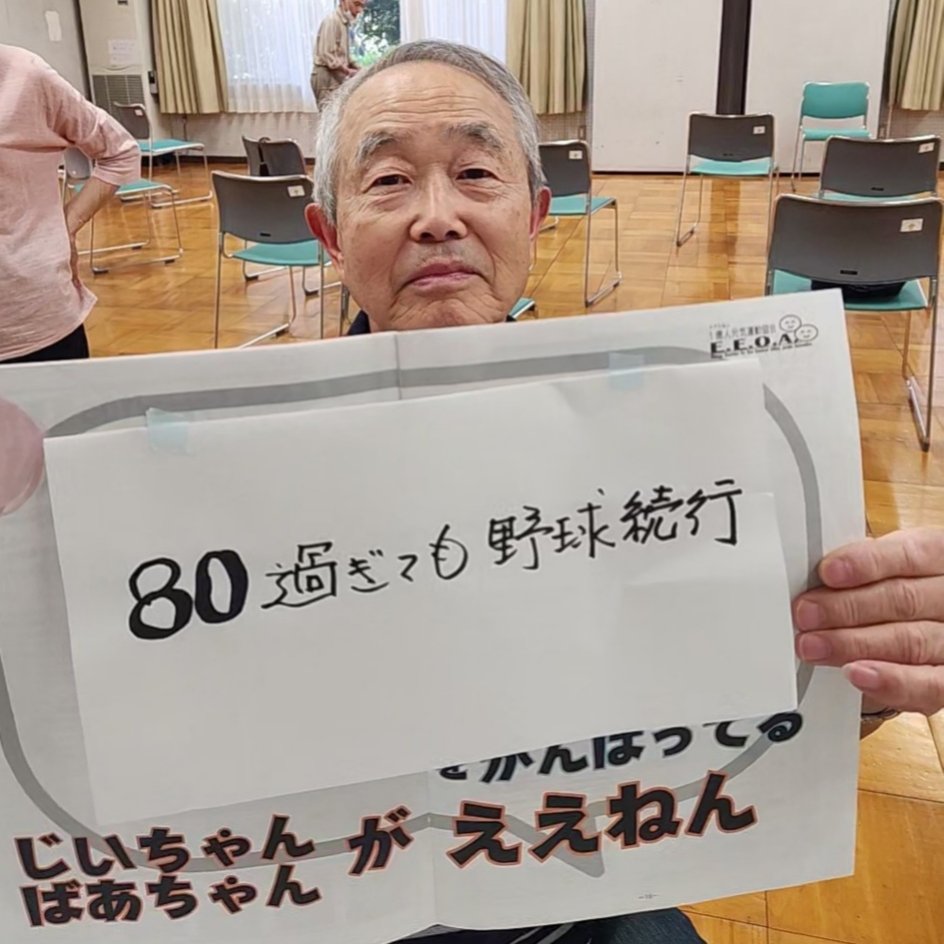 1億人元気運動協会
E.E.O.A
80過ぎても野球続行
をがんばってる
じいちゃん
ばあちゃん
が ええねん